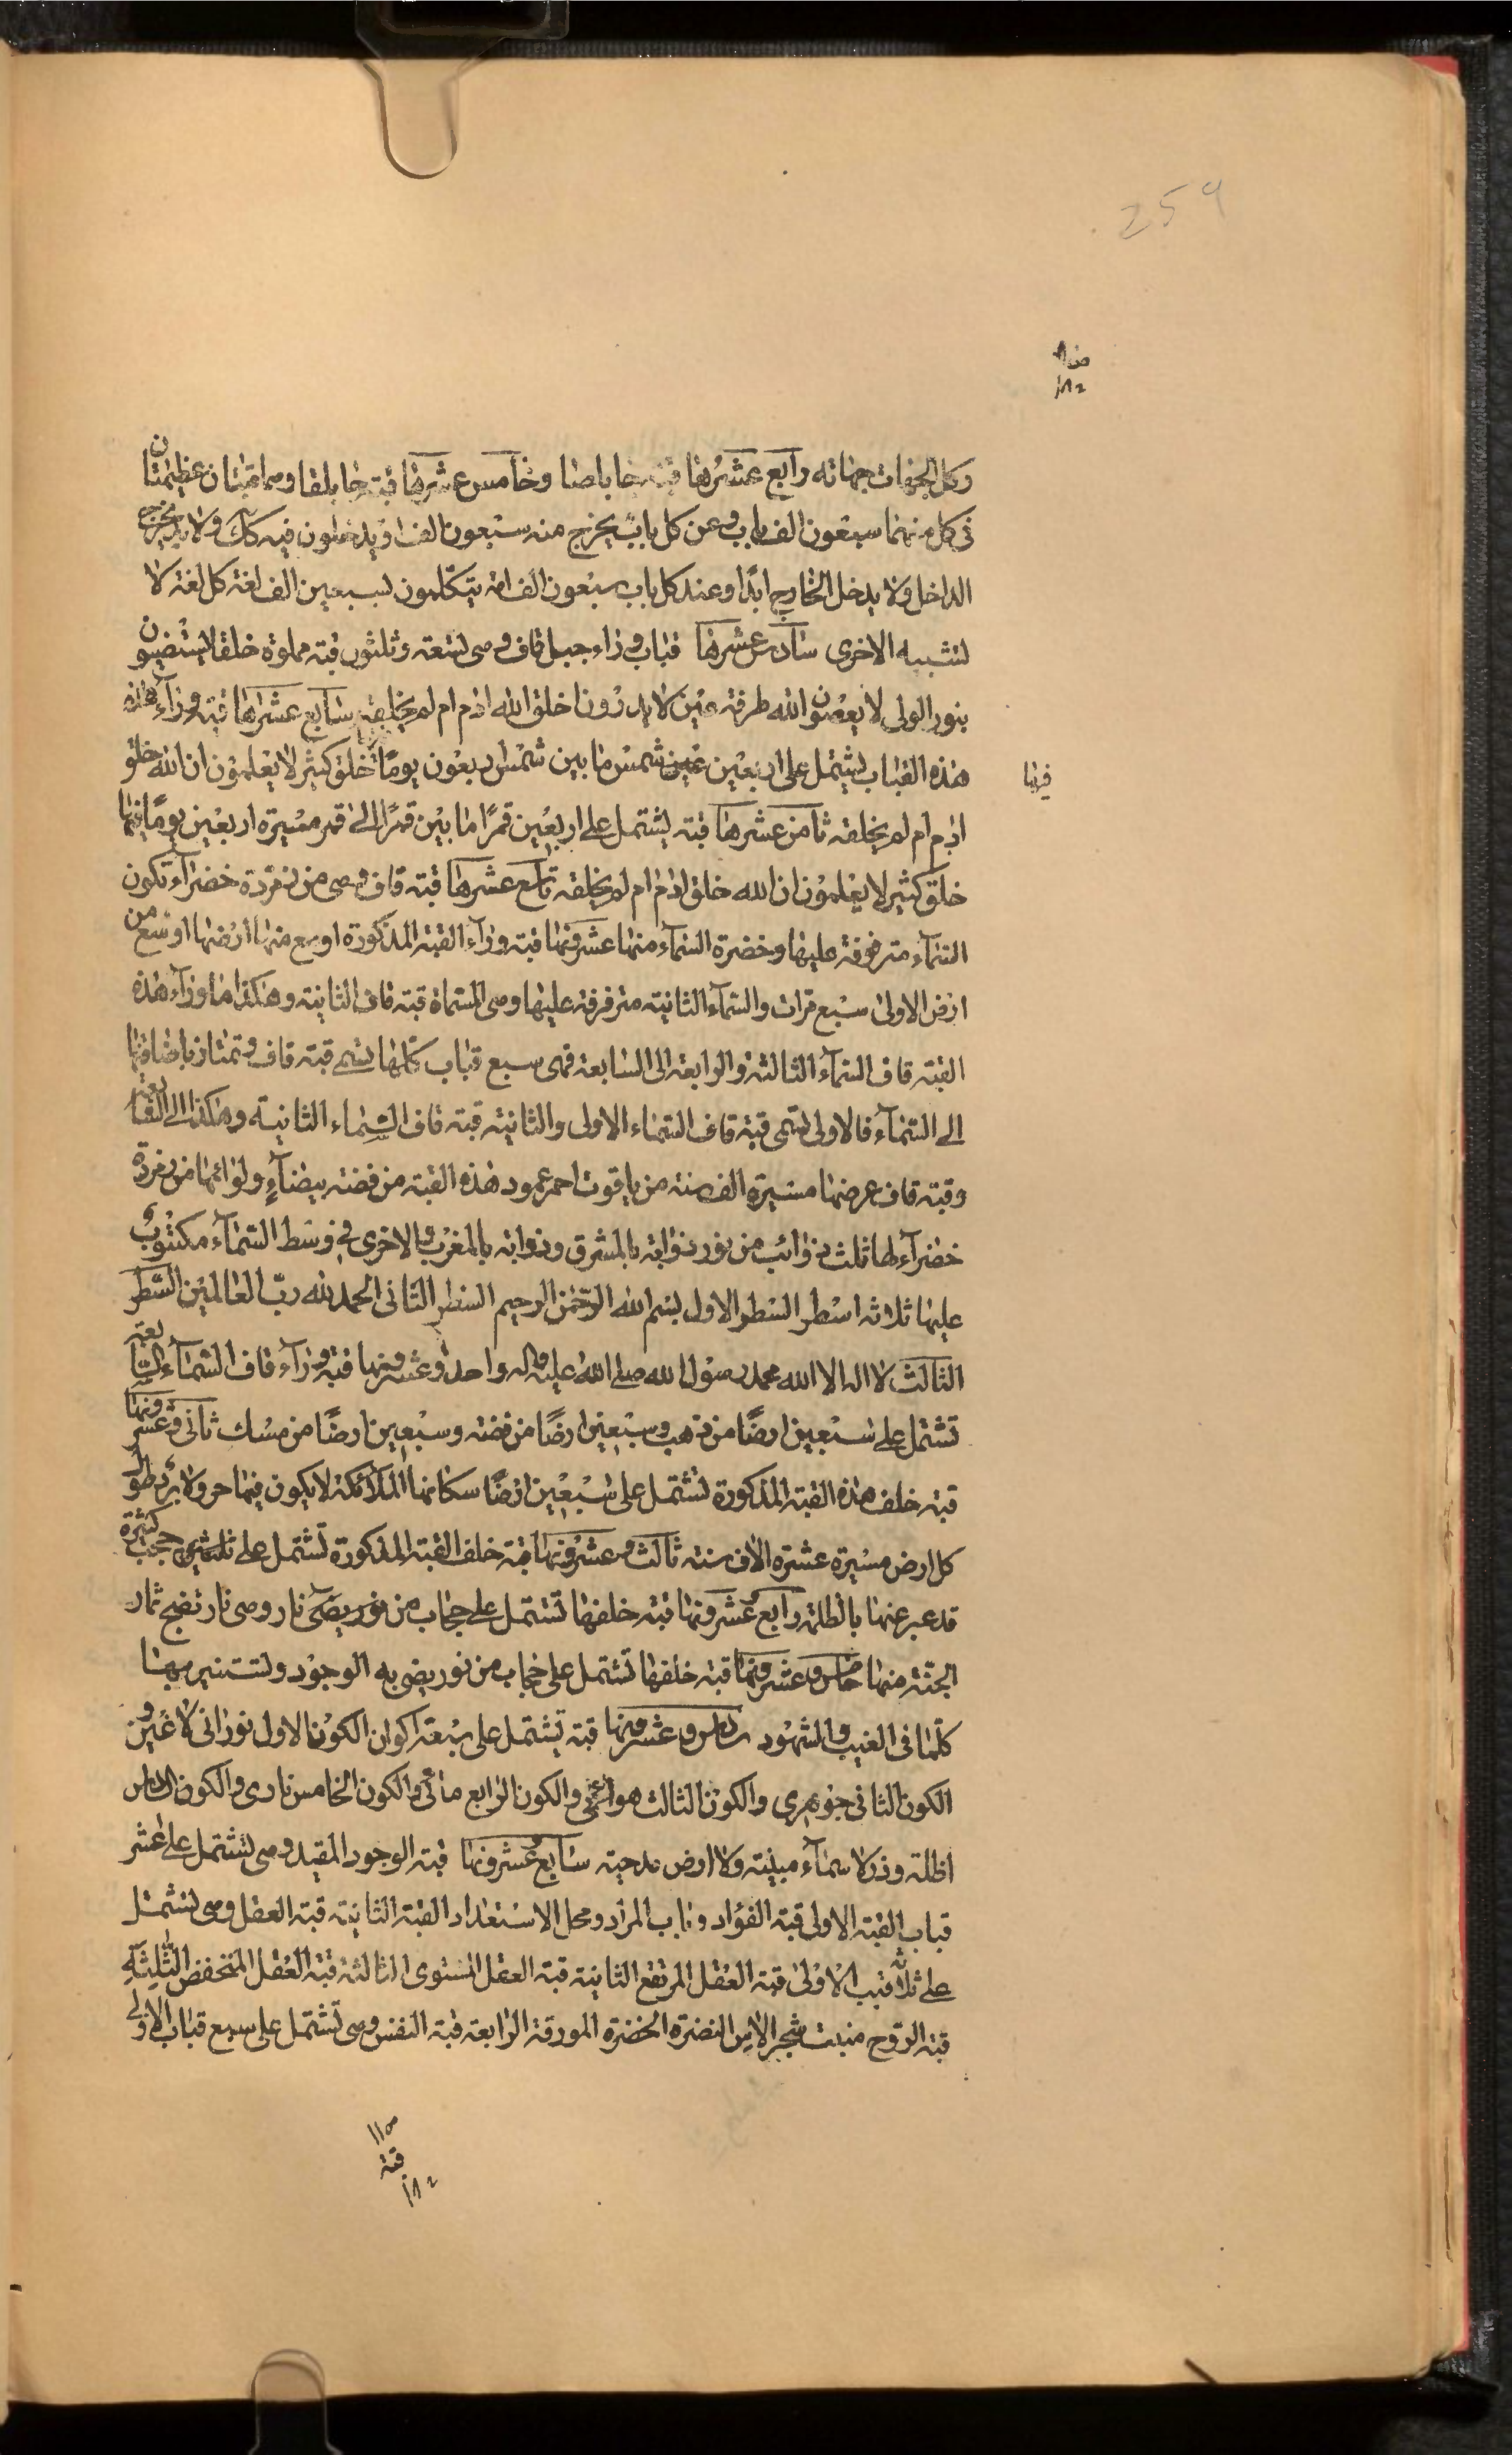 259
وكل الجهات جهاته رابع عشرها قبة جابلصا وخامس عشرها قبة جابلقا وهما قبتان عظيمتان
فى كل منهما سبعون الف باب وعن كل باب يخرج منه سبعون الف ويدخلون فيه كك ولا يخرج
الداخل ولا يدخل الخارج ابدًا وعند كل باب سبعون الف امة يتكلمون بسبعين الف لغة كل لغة لا
تشبيه الاخرى سادس عشرها قباب وراء جبل قاف وهى تسعة وثلثون قبة مملوة خلقا يستضيئون
بنور الولى لا يعصون الله طرفة عين لا يدرون اخلق الله ادم ام لم يخلقه سابع عشرها قبة وراء هذه
هذه القباب يشتمل على اربعين عين شمس ما بين شمس اربعون يومًا خلق كثير لا يعلمون ان الله خلق
فيها
ادم ام لم يخلقه ثامن عشرها قبة يشتمل على اربعين قمرًا ما بين قمرًا الى قمر مسيرة اربعين يومًا فيها
خلق كثير لا يعلمون ان الله خلق ادم ام لم يخلقه تاسع عشرها قبة قاف وهى من زمردة خضراء تكون
السماء مترفرفة عليها وخضرة السماء منها عشرونها قبة وراء القبة المذكورة اوسع منها ارضها اوسع من
ارض الاولى سبع مرات والسماء الثانية مترفرفة عليها وهى المسماة قبة قاف الثانية وهكذا ما وراء هذه
القبة قاف السماء الثالثة والرابعة الى السابعة فهى سبع قباب كلها تسمى قبة قاف وتمتاز باضافتها
الى السماء فالاولى تسمى قبة قاف السماء الاولى والثانية قبة قاف السماء الثانية وهكذا الى السابعة
وقبة قاف عرضها مسيرة الف سنة من ياقوت احمر عمود هذه القبة من فضة بيضاء ولوائها من زمردة
خضراء لها ثلث ذوائب من نور ذوابة بالمشرق وذوابة بالمغرب والاخرى فى وسط السماء مكتوب
عليها ثلاثة اسطر السطر الاول بسم الله الرحمن الرحيم السطر الثانى الحمد لله رب العالمين السطر
الثالث لا اله الا الله محمد رسول الله صلى الله عليه واله واحد وعشرونها قبة وراء قاف السماء السابعة
تشتمل على سبعين ارضًا من ذهب وسبعين ارضًا من فضة وسبعين ارضًا من مسك ثانى وعشرونها
قبة خلف هذه القبة المذكورة تشتمل على سبعين ارضًا سكانها الملائكة لا يكون فيها حر ولا برد طول
كل ارض مسيرة عشرة الاف سنة ثالث وعشرونها قبة خلف القبة المذكورة تشتمل على حجب كثيرة
قد عبر عنها بالظلمة رابع عشرونها قبة خلفها تشتمل على حجاب من نور يضئ نار وهى نار تنضج ثمار
الجنة منها خامس وعشرونها قبة خلفها تشتمل على حجاب من نور يضئ به الوجود وتستنير بهـا
كلما فى الغيب والشهود سادس وعشرونها قبة تشتمل على ستة اكوان الكون الاول نورانى لا غير و
الكون الثانى جوهرى والكون الثالث هوائى والكون الرابع مائى والكون الخامس نارى والكون السادس
اظلة وذر لا سماء مبنية ولا ارض مدحية سابع عشرونها قبة الوجود المقيد وهى تشتمل على عشر
قباب القبة الاولى قبة الفؤاد وباب المراد ومحل الاستعداد القبة الثانية قبة العقل وهى تشتمل
على ثلاثة قبب الاولى قبة العقل المرتفع الثانية قبة العقل المستوى الثالثة قبة العقل المنخفض الثالثة
قبة الروح منبت شجر الاس النضرة الخضرة المورقة الرابعة قبة النفس وهى تشتمل على سبع قباب الاولى
قبة